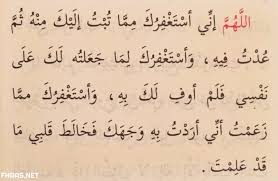 اللَّهُمَّ إِنِّي أَسْتَغْفِرُكَ مِمَّا تُبْتُ إِلَيْكَ مِنْهُ ثُمَّ
عُدْتُ فِيهِ ، وَأَسْتَغْفِرُكَ لِمَا جَعَلتُه لَكَ عَلَى
نَفْسِي فَلَمْ أُوفِ لَكَ بِهِ ، وَأَسْتَغْفِرُكَ مِمَّا
زَعَمْتُ أَنِّي أَرَدْتُ بِهِ وَجَهَكَ فَخَالَطَ قَلبِي مَا
قَدْ عَلِمْتَ .
FHRAS.NET